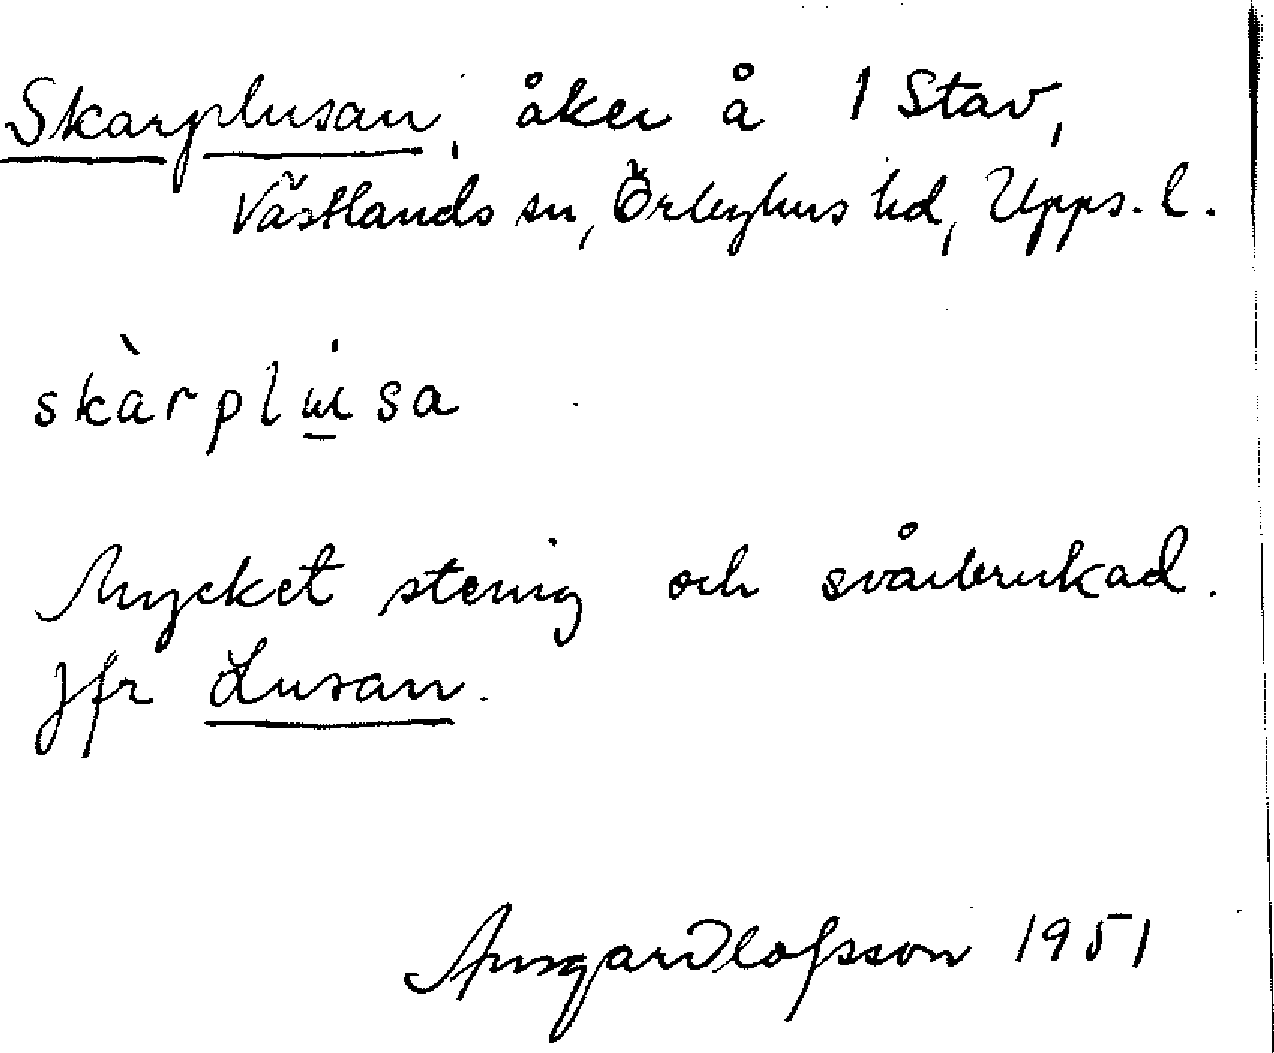 Skarplusan, åker å 1 Stav,
Västlands sn, Örbyhus hd, Upps. l.
skàrplɯ̲́sa
Mycket stenig och svårbrukad.
Jfr Lusan.
Ansgar Olofsson 1951